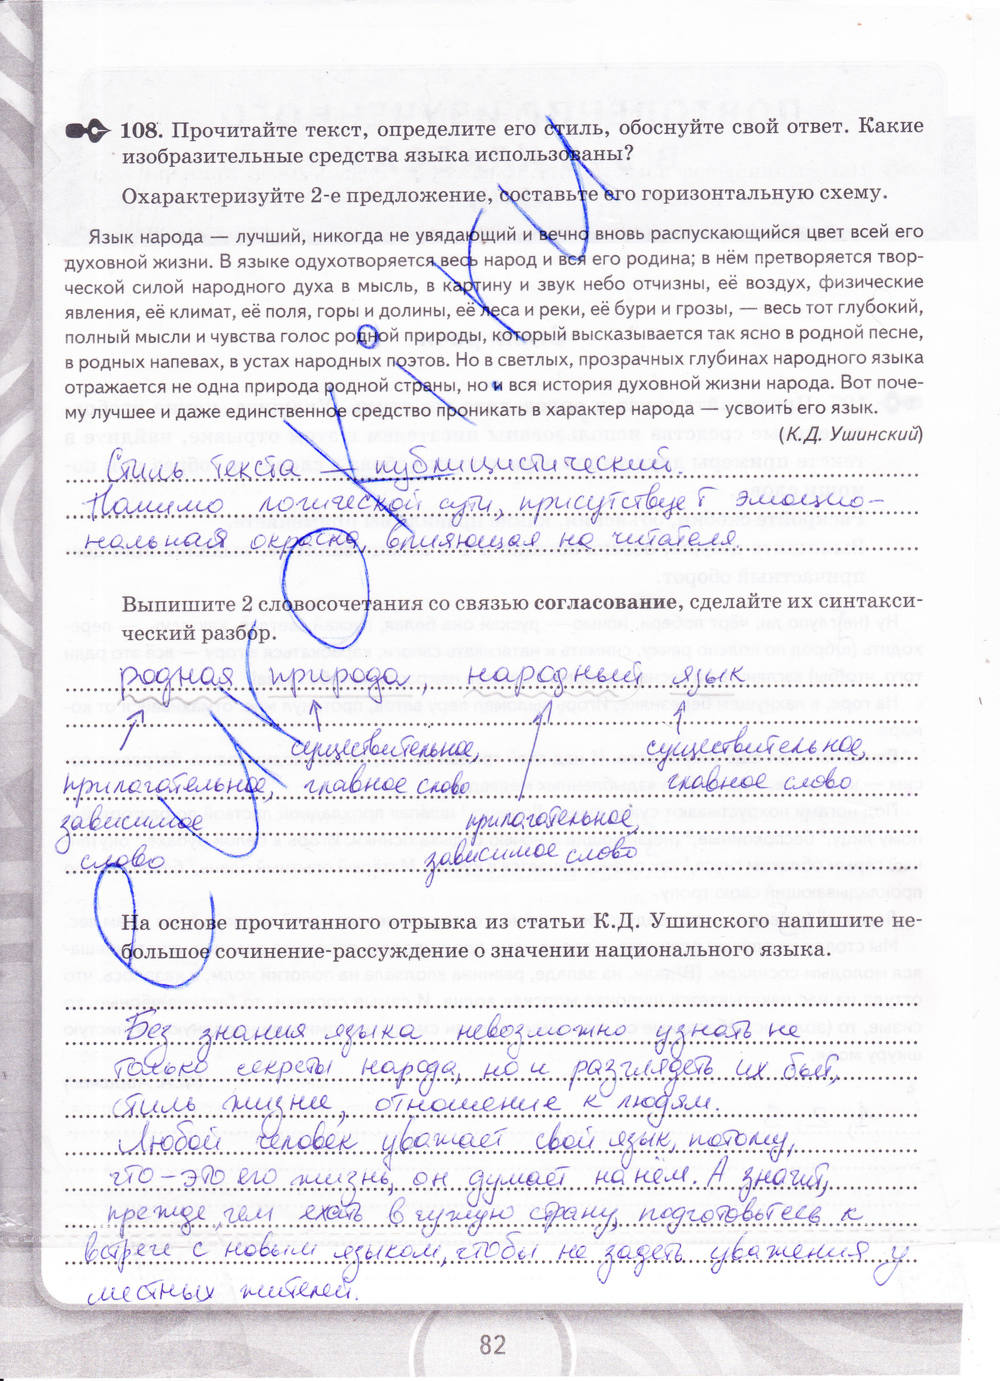 108. Прочитайте текст, определите его стиль, обоснуйте свой ответ. Какие
изобразительные средства языка использованы?
Охарактеризуйте 2-е предложение, составьте его горизонтальную схему.
Язык народа — лучший, никогда не увядающий и вечно вновь распускающийся цвет всей его
духовной жизни. В языке одухотворяется весь народ и вся его родина; в нём претворяется твор-
ческой силой народного духа в мысль, в картину и звук небо отчизны, её воздух, физические
явления, её климат, её поля, горы и долины, её леса и реки, её бури и грозы, — весь тот глубокий,
полный мысли и чувства голос родной природы, который высказывается так ясно в родной песне,
в родных напевах, в устах народных поэтов. Но в светлых, прозрачных глубинах народного языка
отражается не одна природа родной страны, но и вся история духовной жизни народа. Вот поче-
му лучшее и даже единственное средство проникать в характер народа — усвоить его язык.
(К.Д. Ушинский)
Стиль текста — публицистический.
Помимо логической сути, присутствует эмоцио-
нальная окраска, влияющая на читателя.
Выпишите 2 словосочетания со связью согласование, сделайте их синтакси-
ческий разбор.
родная природа, народный язык
существительное, существительное,
прилагательное, главное слово главное слово
зависимое прилагательное,
слово зависимое слово
На основе прочитанного отрывка из статьи К.Д. Ушинского напишите не-
большое сочинение-рассуждение о значении национального языка.
Без знания языка невозможно узнать не
только секреты народа, но и разглядеть их быт,
стиль жизни, отношение к людям.
Любой человек уважает свой язык, потому,
что – это его жизнь, он думает на нём. А значит,
прежде, чем ехать в чужую страну, подготовьтесь к
встрече с новым языком, чтобы не задеть уважения у
местных жителей.
82